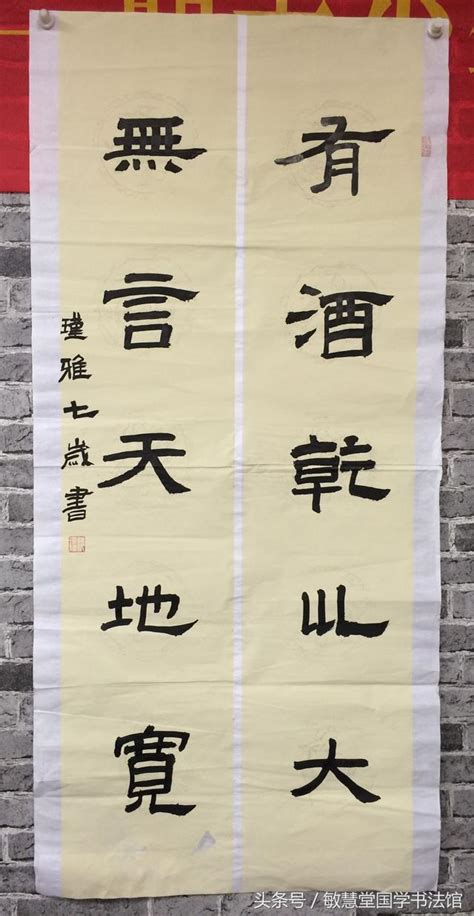 有酒乾坤大
無言天地寬
瑾雅七歲書
头条号 / 敏慧堂国学书法馆